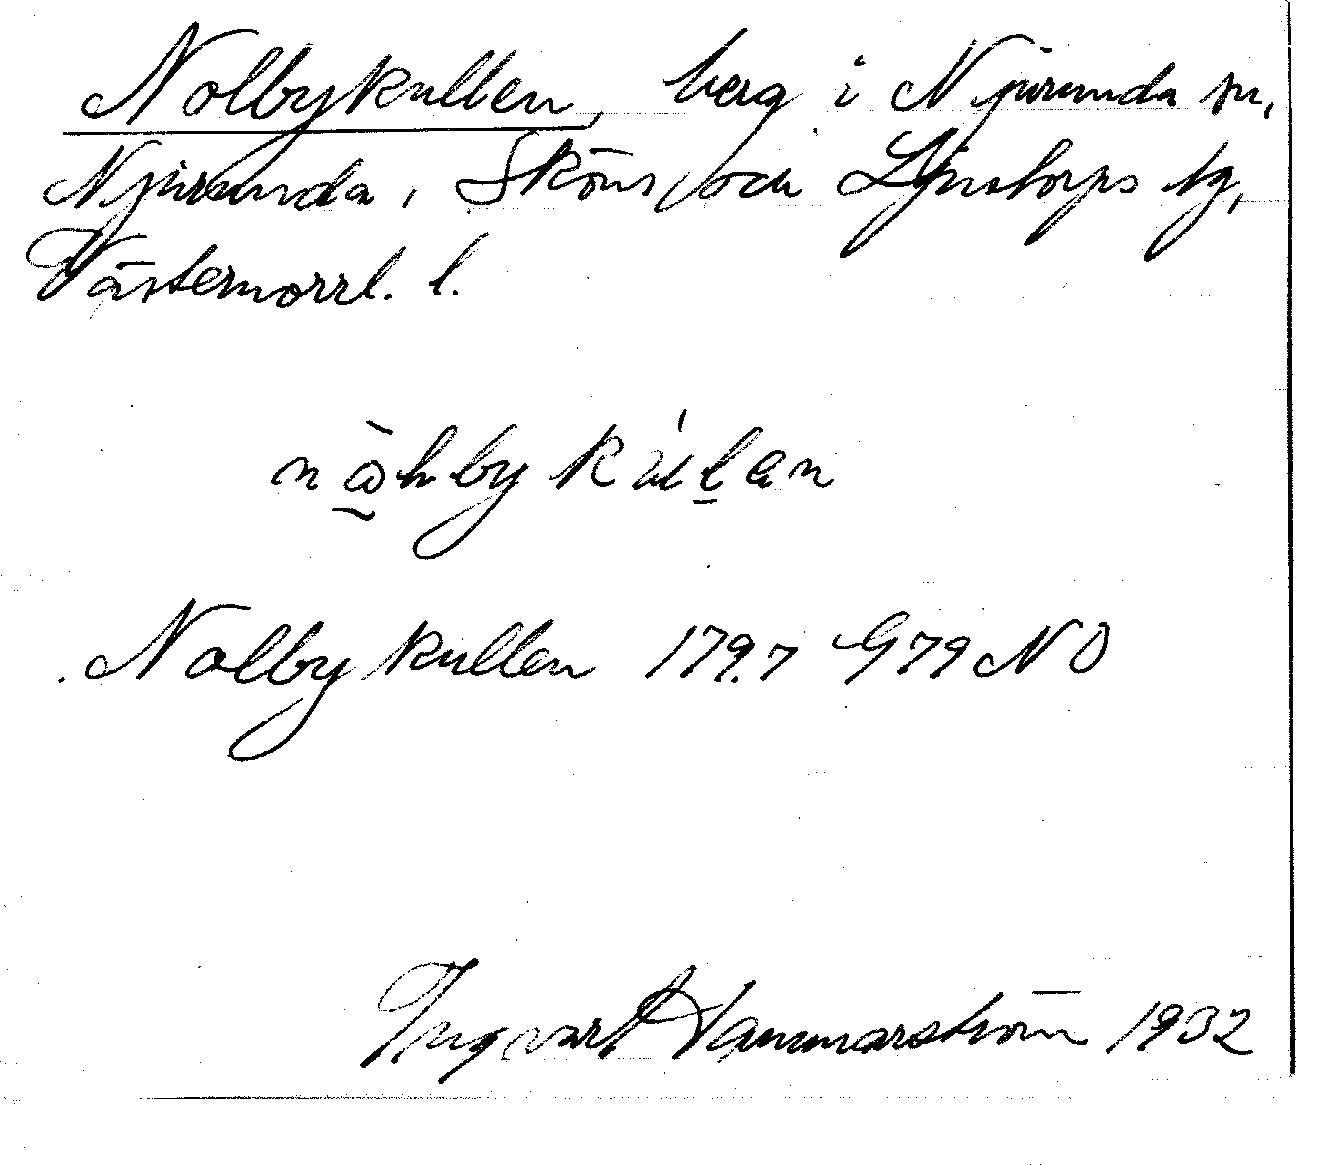 Nolbykullen, berg i Njurunda sn,
Njurunda, Sköns och Ljustorps tg,
Västernorrl. l.
Nolbykullen 179.7 G79NO
Ingvart Hammarström 1932